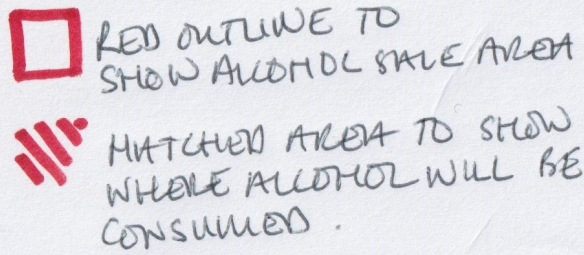 RED OUTLINE TO
SHOW ALCOHOL SALE AREA
HATCHED AREA TO SHOW
WHERE ALCOHOL WILL BE
CONSUMED.